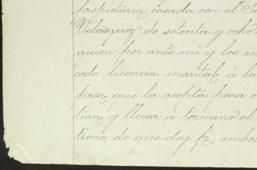 propietaria, casada con el S
Velasquez de setenta y ocho
quien por ante mi y los en
cede licencia marital á la
posa, que la acepta para o
tura y llevar á termino el
tieno, de que doy fé, ambo